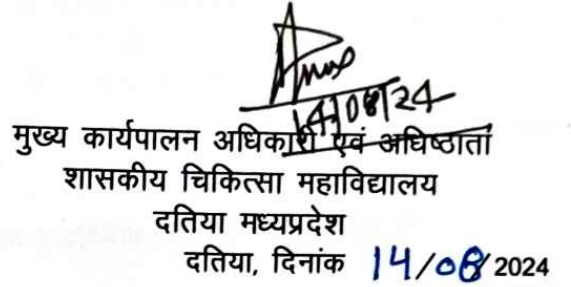 14/08/24
मुख्य कार्यपालन अधिकारी एवं अधिष्ठाता
शासकीय चिकित्सा महाविद्यालय
दतिया मध्यप्रदेश
दतिया, दिनांक 14/08/2024